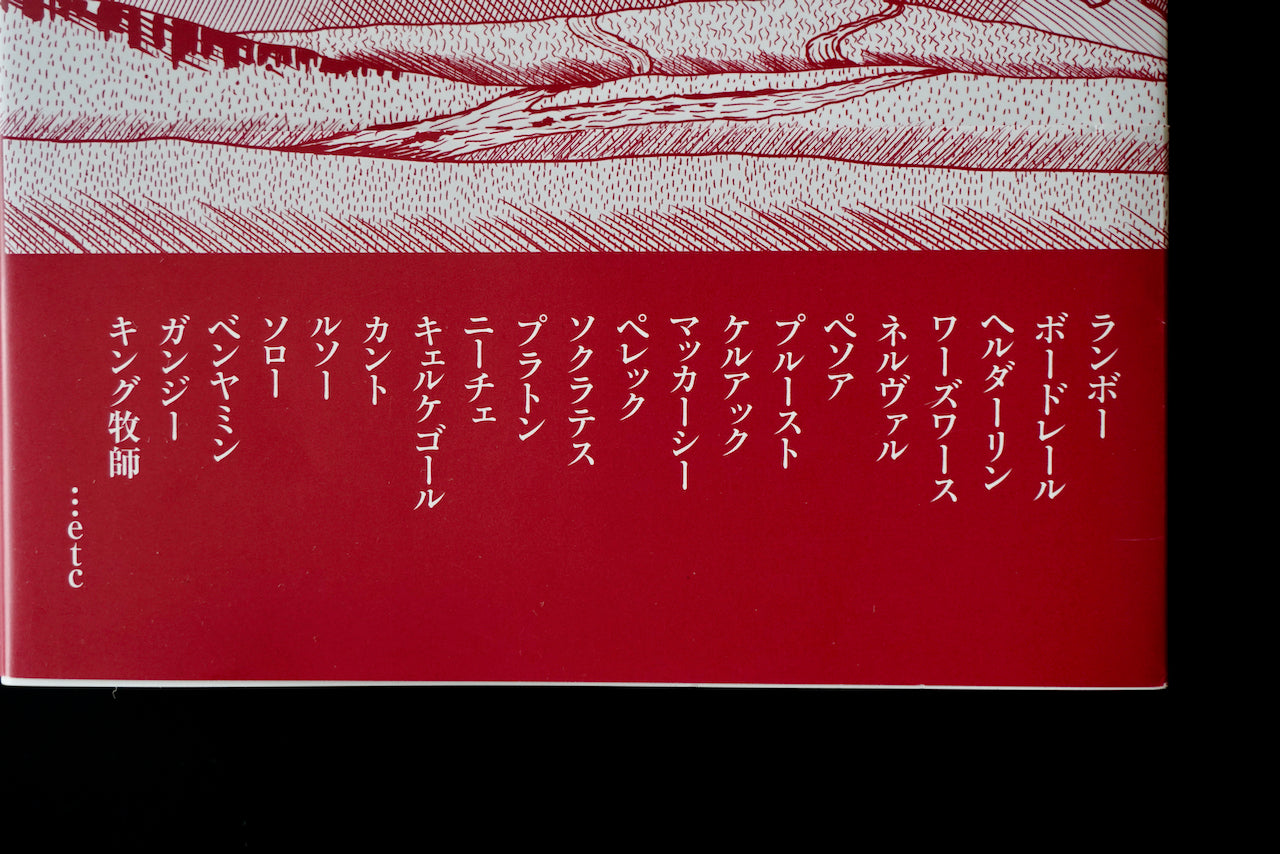 ランボー
ボードレール
ヘルダーリン
ワーズワース
ネルヴァル
ペソア
プルースト
ケルアック
マッカーシー
ペレック
ソクラテス
プラトン
ニーチェ
キェルケゴール
カント
ルソー
ソロー
ベンヤミン
ガンジー
キング牧師
…etc